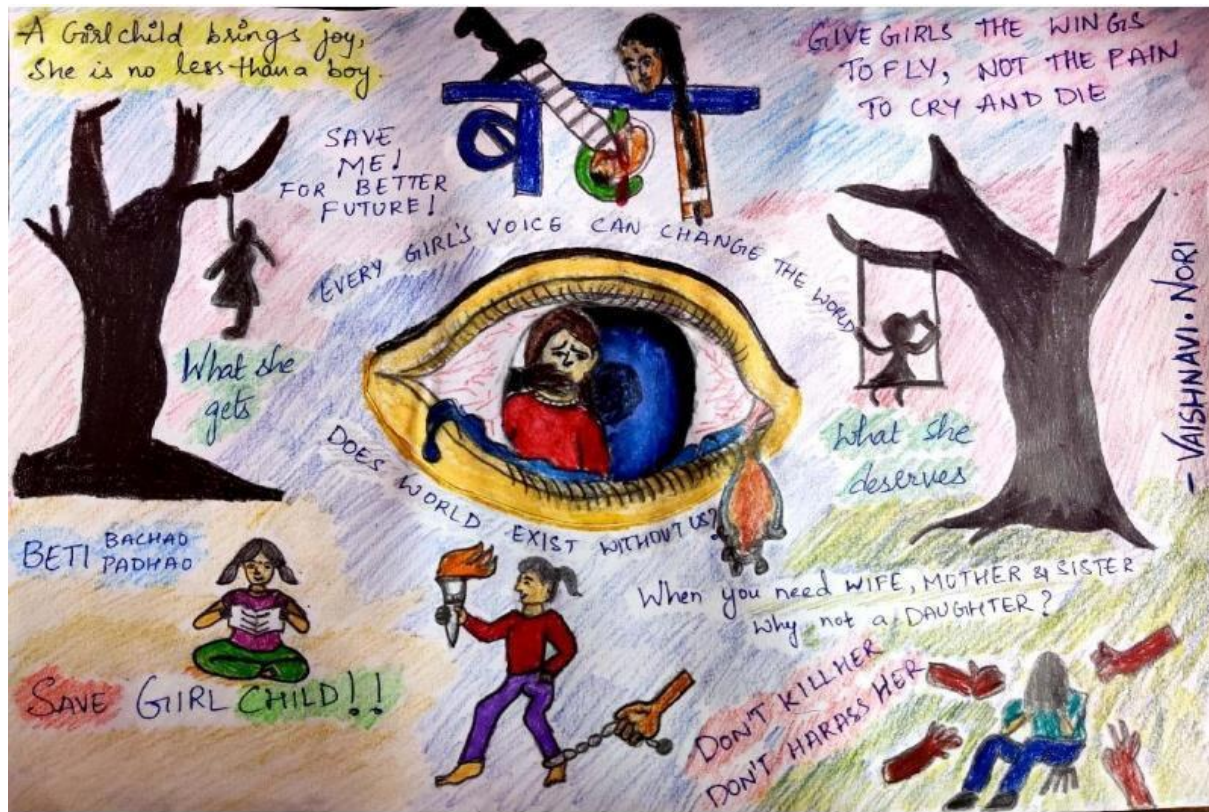 A Girl child brings joy,
She is no less than a boy.
बेटी
GIVE GIRLS THE WINGS
TO FLY, NOT THE PAIN
TO CRY AND DIE
SAVE
ME!
FOR BETTER
FUTURE!
EVERY GIRL'S VOICE CAN CHANGE THE WORLD
What she
gets
What she
deserves
- VAISHNAVI. NORI
DOES WORLD EXIST WITHOUT US?
BETI BACHAO
PADHAO
When you need WIFE, MOTHER & SISTER
why not a DAUGHTER?
SAVE GIRL CHILD!!
DON'T KILL HER
DON'T HARASS HER